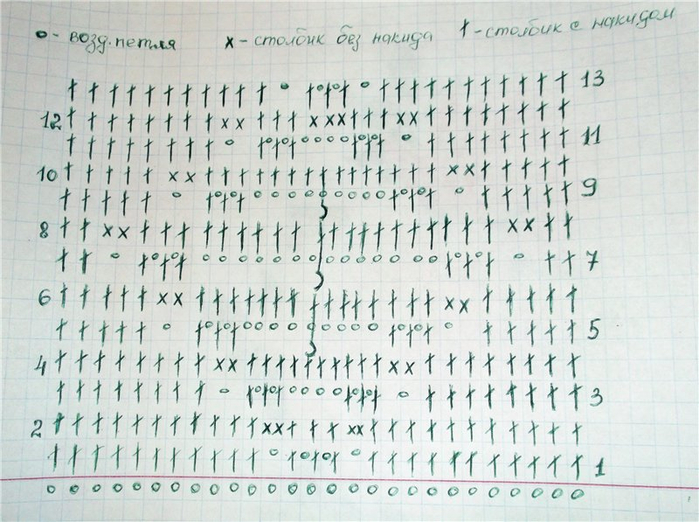 о - возд. петля x - столбик без накида † - столбик с накидом
13
12
11
10
9
8
7
6
5
4
3
2
1